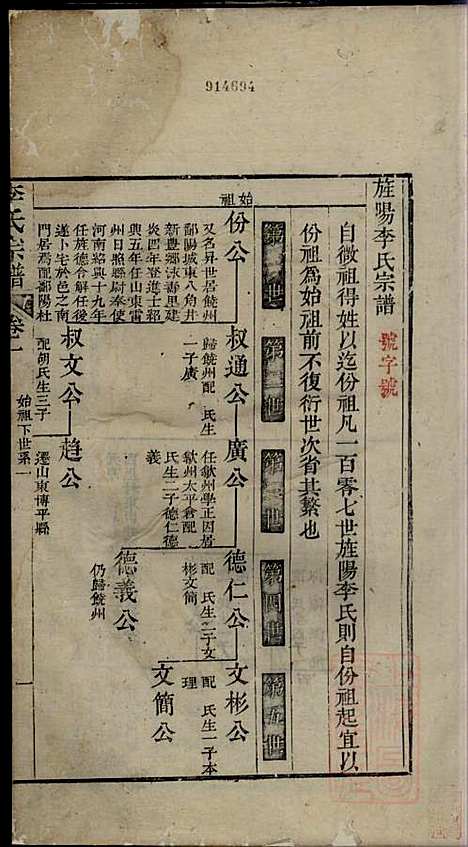 914694
旌陽李氏宗譜 號字號
自徵祖得姓以迄份祖凡一百零七世旌陽李氏則自份祖起宜以
份祖為始祖前不復衍世次省其繁也
第一世 第二世 第三世 第四世 第五世
始祖
份公 叔通公 廣公 德仁公 文彬公
又名昇世居饒州
鄱陽城東八角井
新豊鄉沐壽里建
炎四年登進士紹
興五年任山東雷
州日照縣尉奉使
河南紹興十九年
任旌德令解任後
遂卜宅於邑之南
門居焉配鄱陽杜
歸饒州配 氏生
一子廣
任歙州學正因居
歙州太平倉配
氏生二子德仁德
義
配 氏生二子文
彬文簡
配 氏生一子本
理
文簡公
德義公
仍歸饒州
叔文公 趙公
配胡氏生三子
遷山東博平縣
李氏宗譜 卷一 始祖下世系一